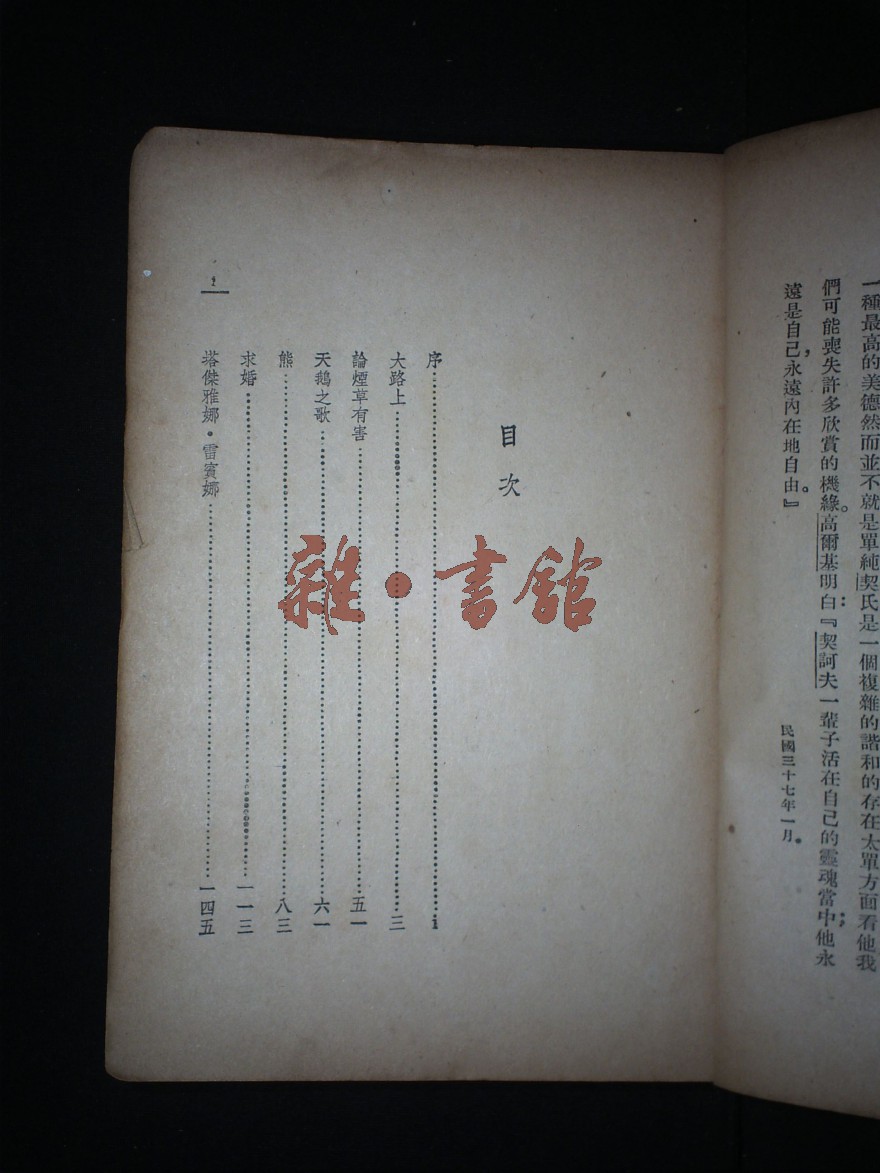 一種最高的美德然而並不就是單純契氏是一個複雜的諧和的存在太單方面看他我
們可能喪失許多欣賞的機緣。高爾基明白：『契訶夫一輩子活在自己的靈魂當中；他永
遠是自己，永遠內在地自由。』
民國三十七年一月。
目次
序……i
大路上……三
論煙草有害……五一
天鵝之歌……六一
熊……八三
求婚……一一三
塔傑雅娜·雷賓娜……一四五
雜·書館